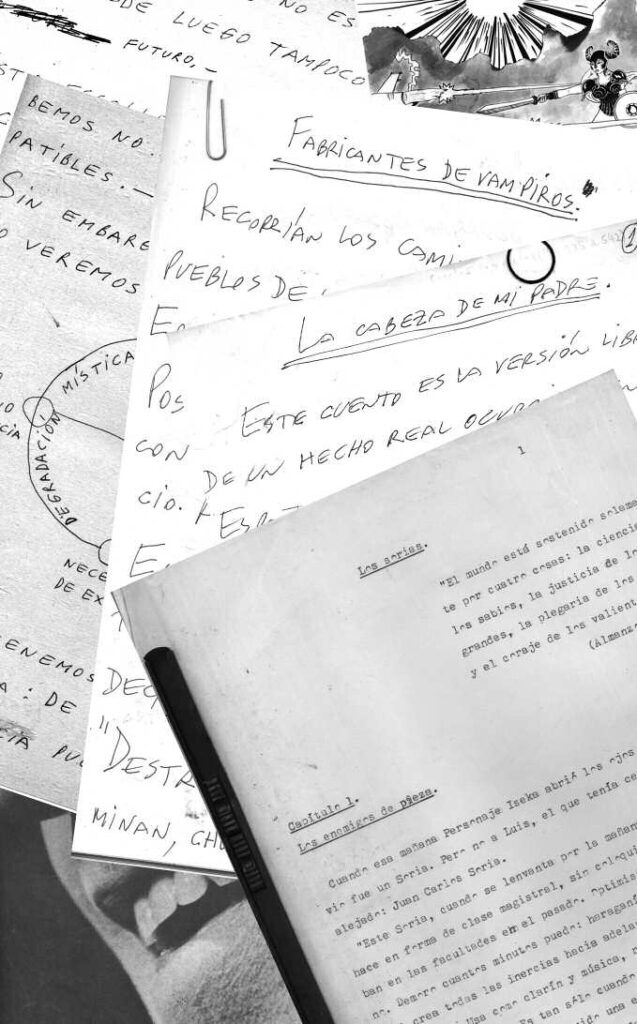 NO ES
DE LUEGO TAMPOCO
FUTURO.—
BEMOS NO
PATIBLES.—
SIN EMBARG
O VEREMOS
MÍSTICA
CIA
DEGRADACIÓN
NECE
DE EX
ENEMOS
A: DE
CIA PU
FABRICANTES DE VAMPIROS.
RECORRÍAN LOS CAMI
PUEBLOS DE
E
POS
CON
CIO.
E
DEC
"DESTR
MINAN, CH
1
LA CABEZA DE MI PADRE.
ESTE CUENTO ES LA VERSIÓN LIBR
DE UN HECHO REAL OCU
1
Los sorias.
"El mundo está sostenido solamen
te por cuatro cosas: la ciencia
los sabios, la justicia de los
grandes, la plegaria de los
y el coraje de los valient
(Almanz
Capítulo 1.
Los enemigos de pieza.
Cuando esa mañana Personaje Iseka abrió los ojos
vio fue un Soria. Pero no a Luis, el que tenía ce
alejado: Juan Carlos Soria.
"Este Soria, cuando se levanta por la mañana
hace en forma de clase magistral, sin coloqui
ban en las facultades en el pasado. Optimis
no. Demora cuantos minutos puede: haraganí
crea todas las inercias hacia adela
Usa como clarín y música,
Es tan sólo cuando